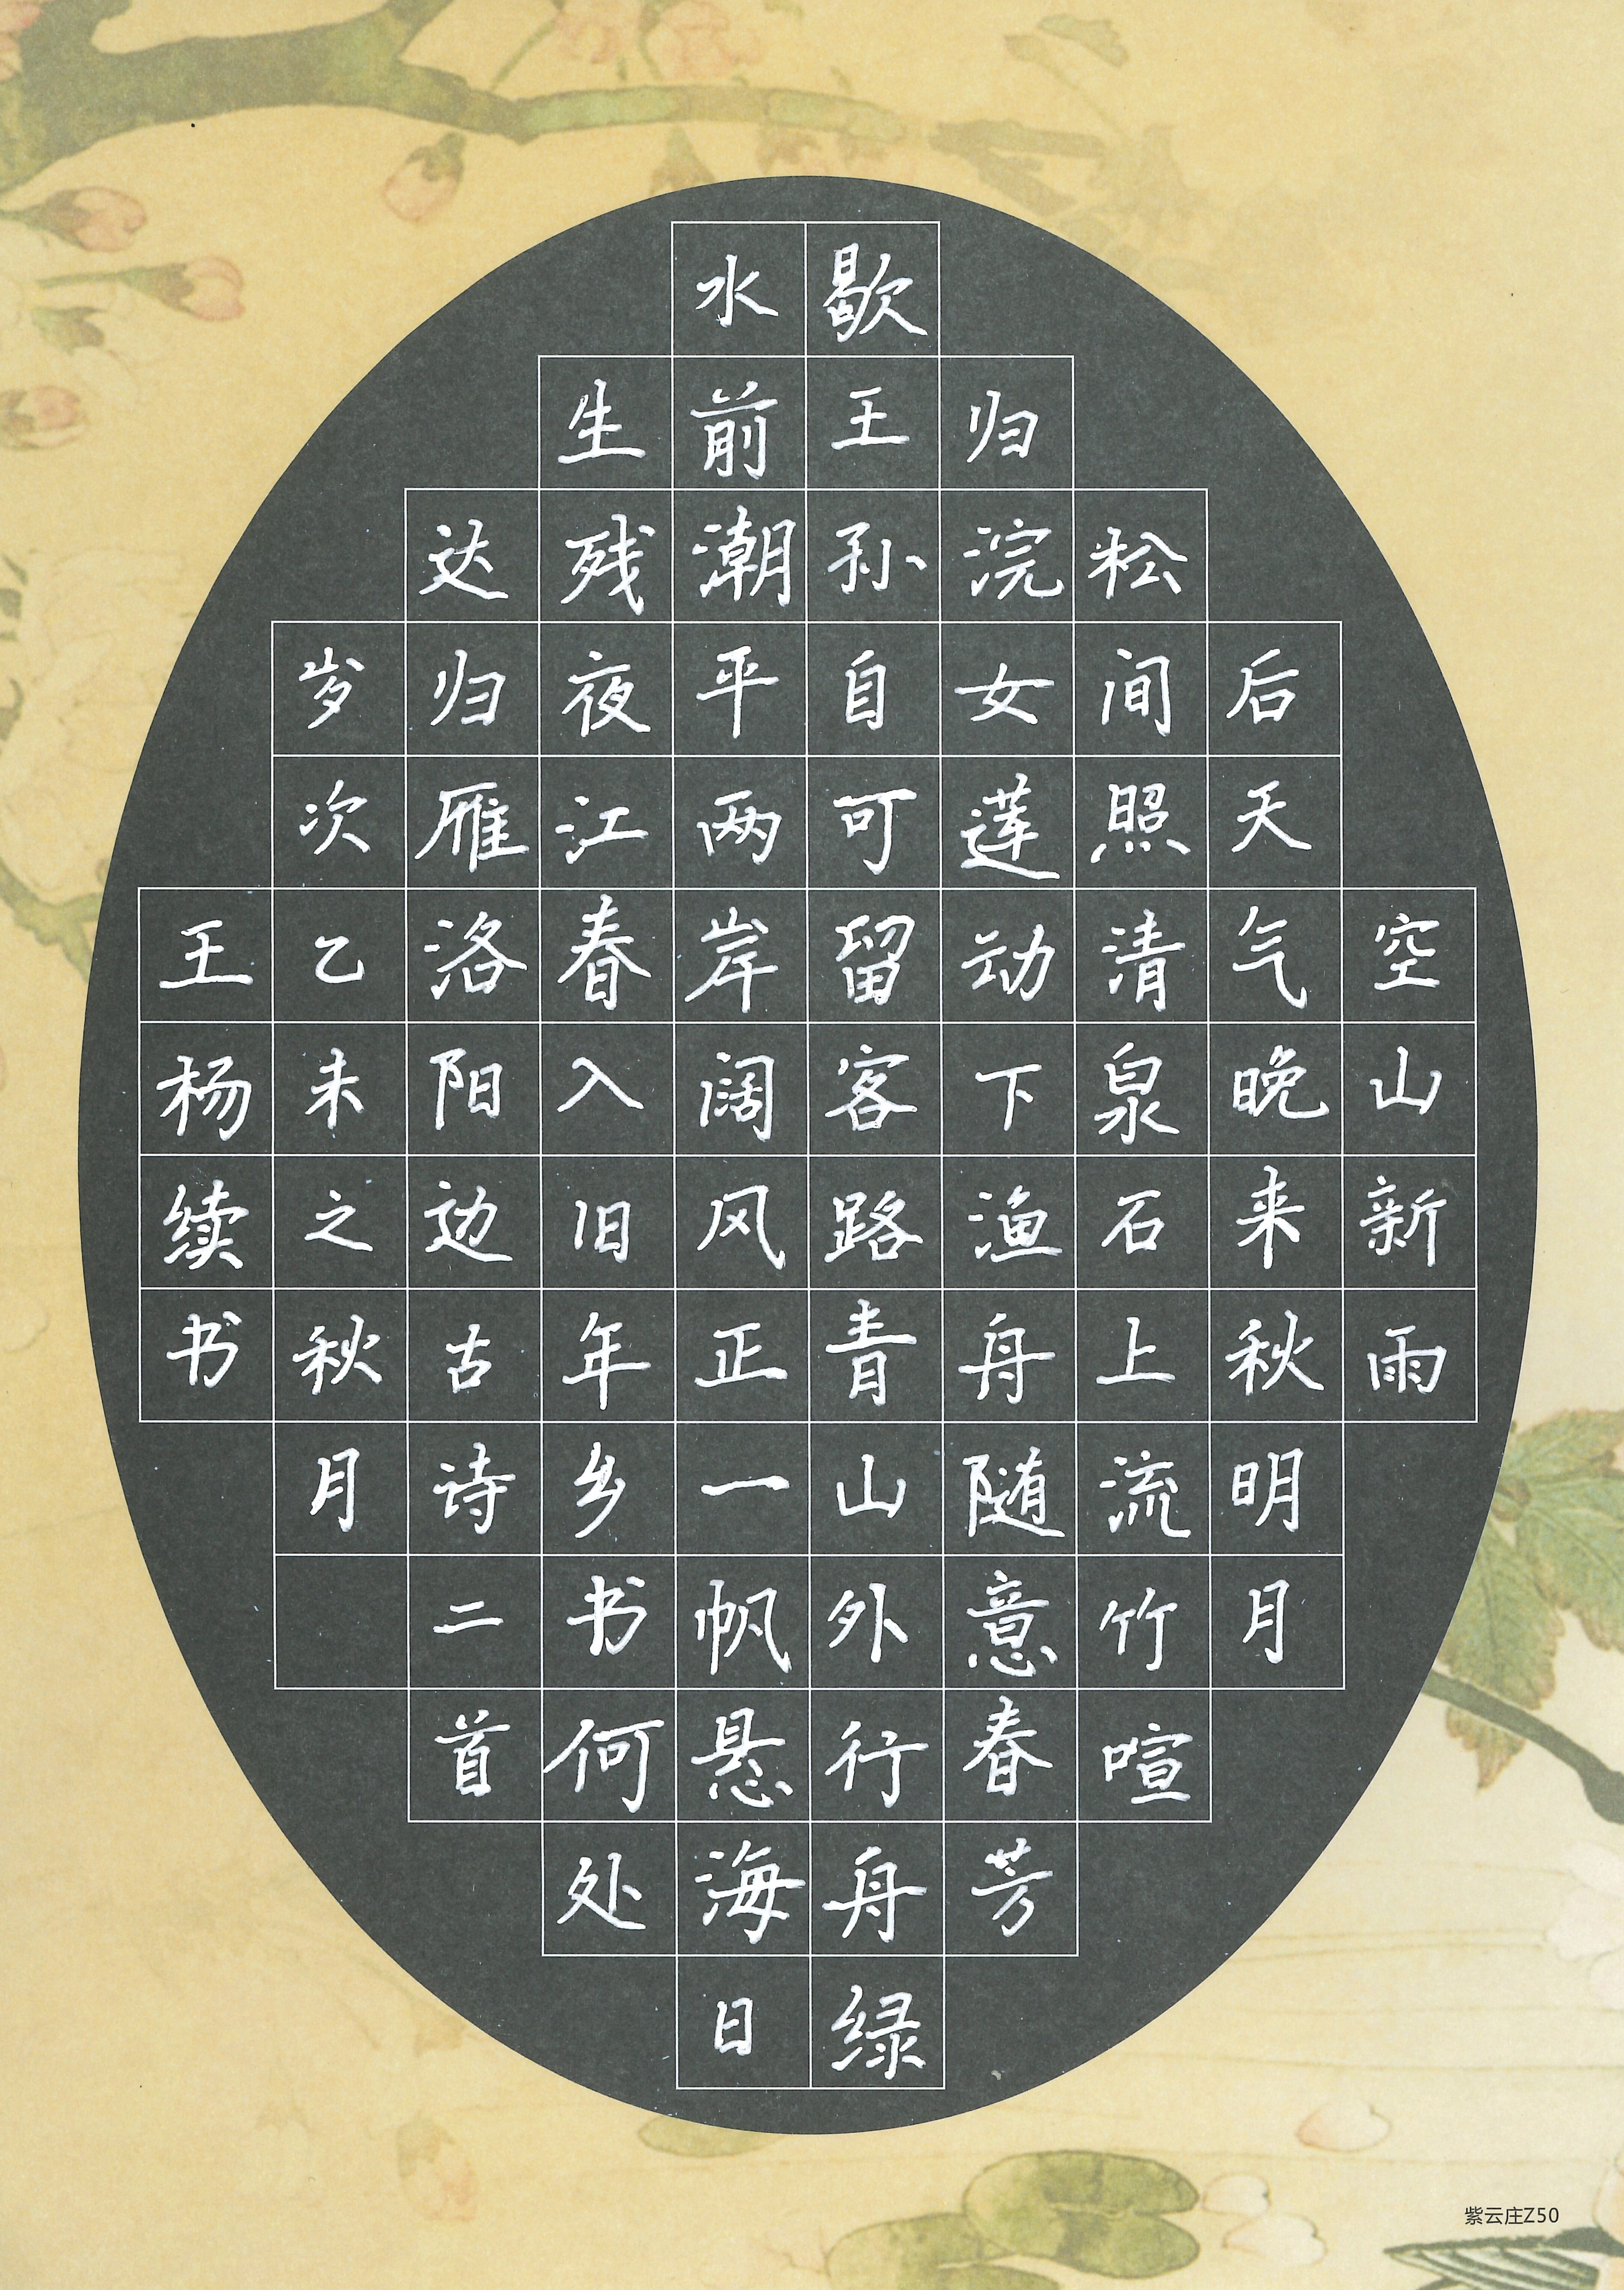 空山新雨
后天气晚来秋明月
松间照清泉石上流竹喧
归浣女莲动下渔舟随意春芳
歇王孙自可留客路青山外行舟绿
水前潮平两岸阔风正一帆悬海日
生残夜江春入旧年乡书何处
达归雁洛阳边古诗二首
岁次乙未之秋月
王杨续书
紫云庄Z50